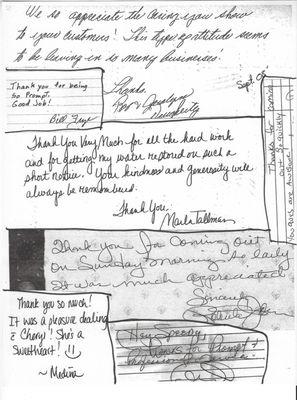 We so appreciate the caring you show
to your customers! This type of attitude seems
to be leaving in so many businesses!
Thanks,
Sept. 08
Thank you for being
So Prompt.
Good Job!
Bill
Thanks for coming
out so quickly!
You guys are Awesome!
Thank You Very Much for all the hard work
and for getting my water restored on such a
short notice. Your kindness and generosity will
always be remembered.
Thank You,
Marla Tallman
Thank you for coming out
on Sunday morning so early
It was much appreciated
Sincerely
Thank you so much!
It was a pleasure dealing
c̄ Cheryl! She's a
Sweetheart!
~ Medina
Hey Speedy,
Thanks for Prompt &
Professional Service.